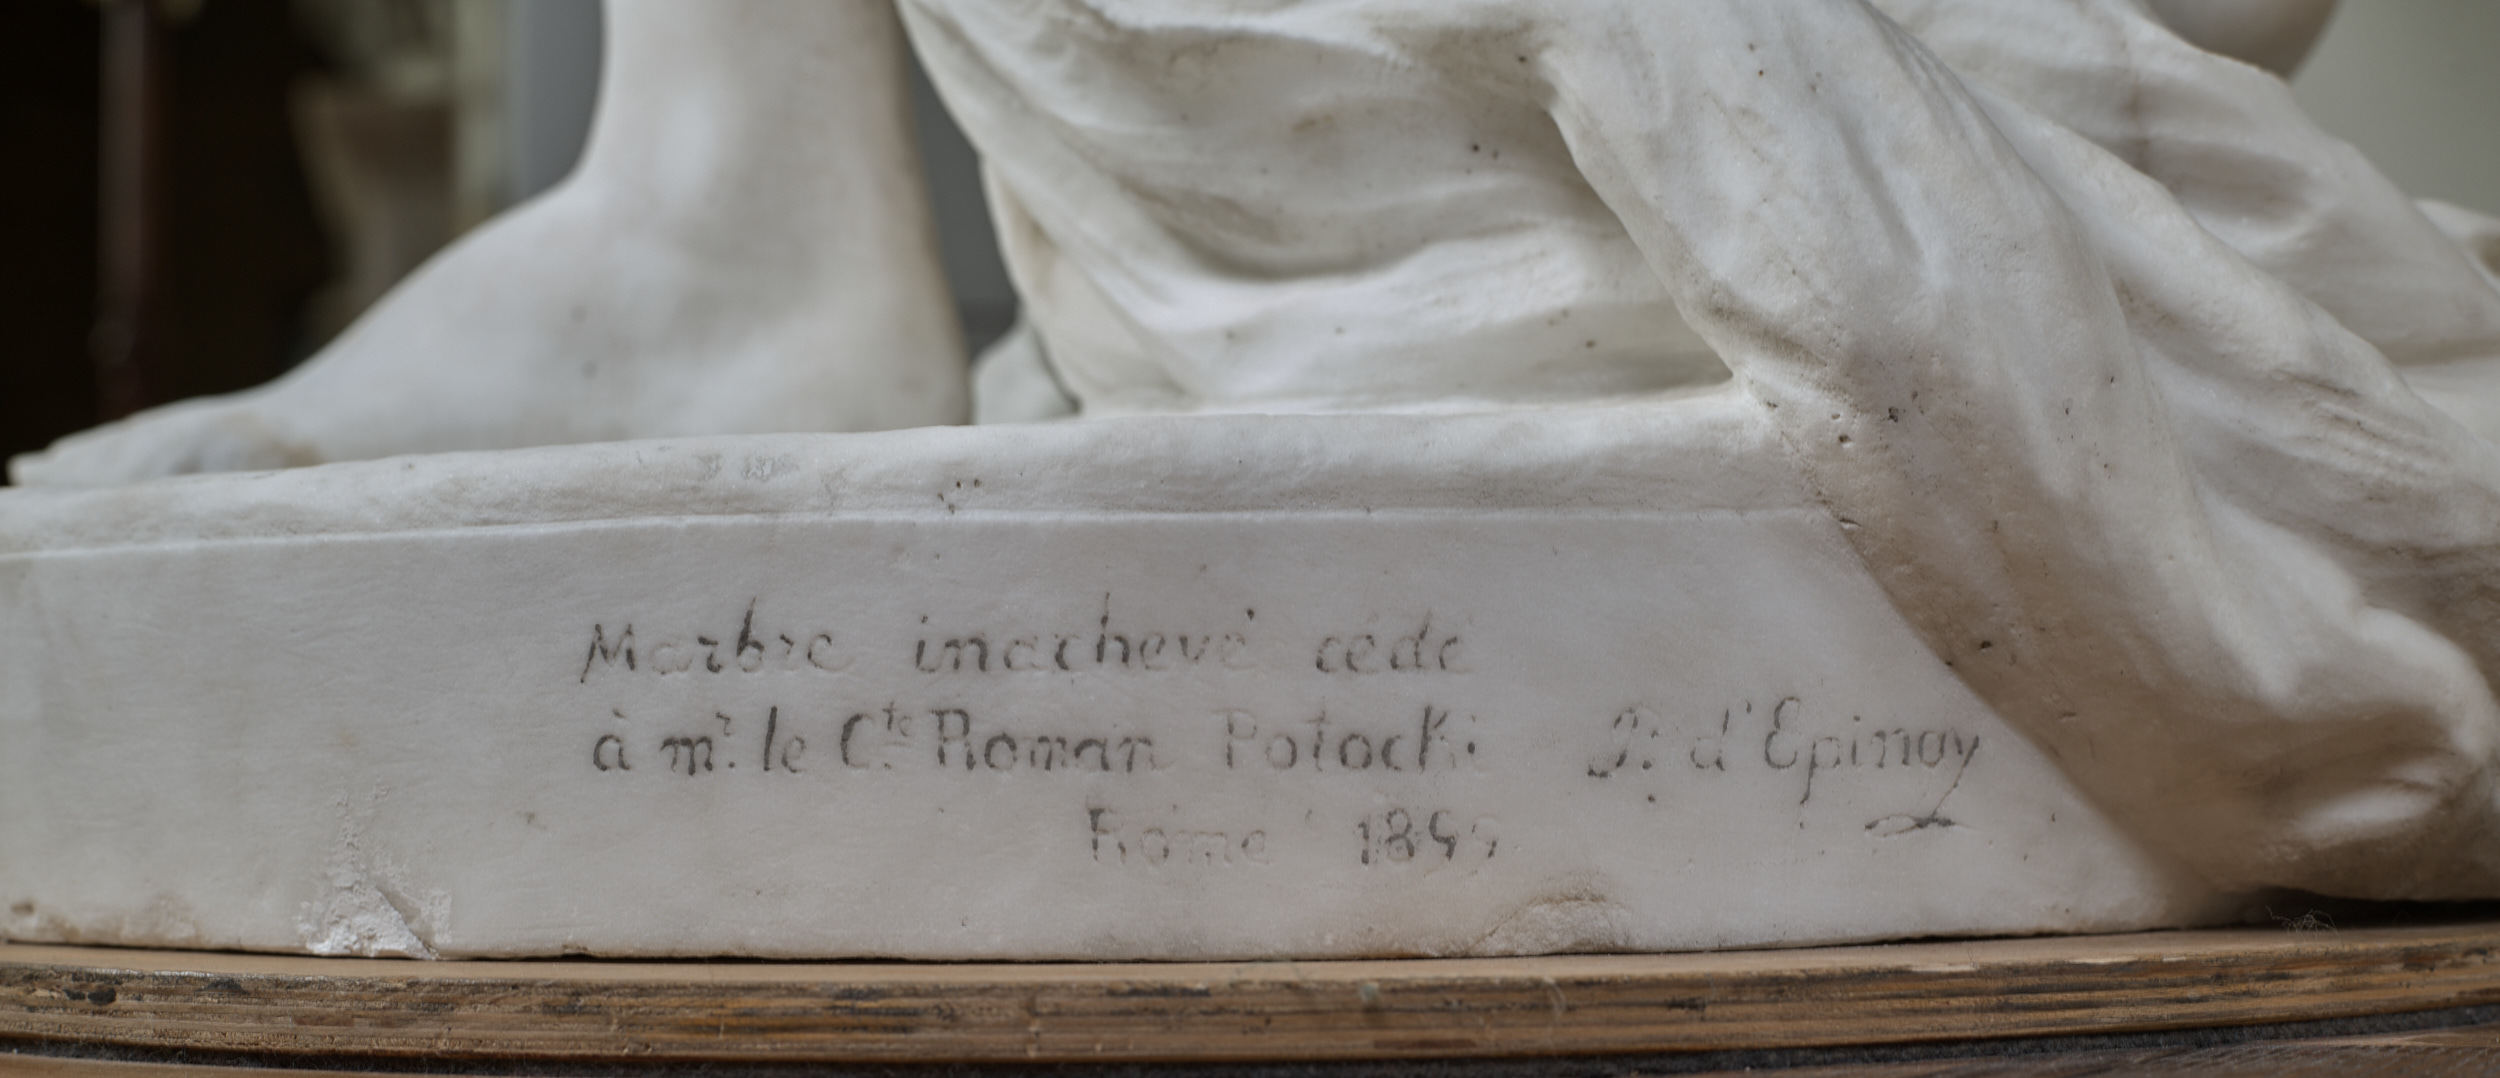 Marbre inachevé cédé
à mr. le Cte. Roman Potocki P. d'Epinay
Rome 1899